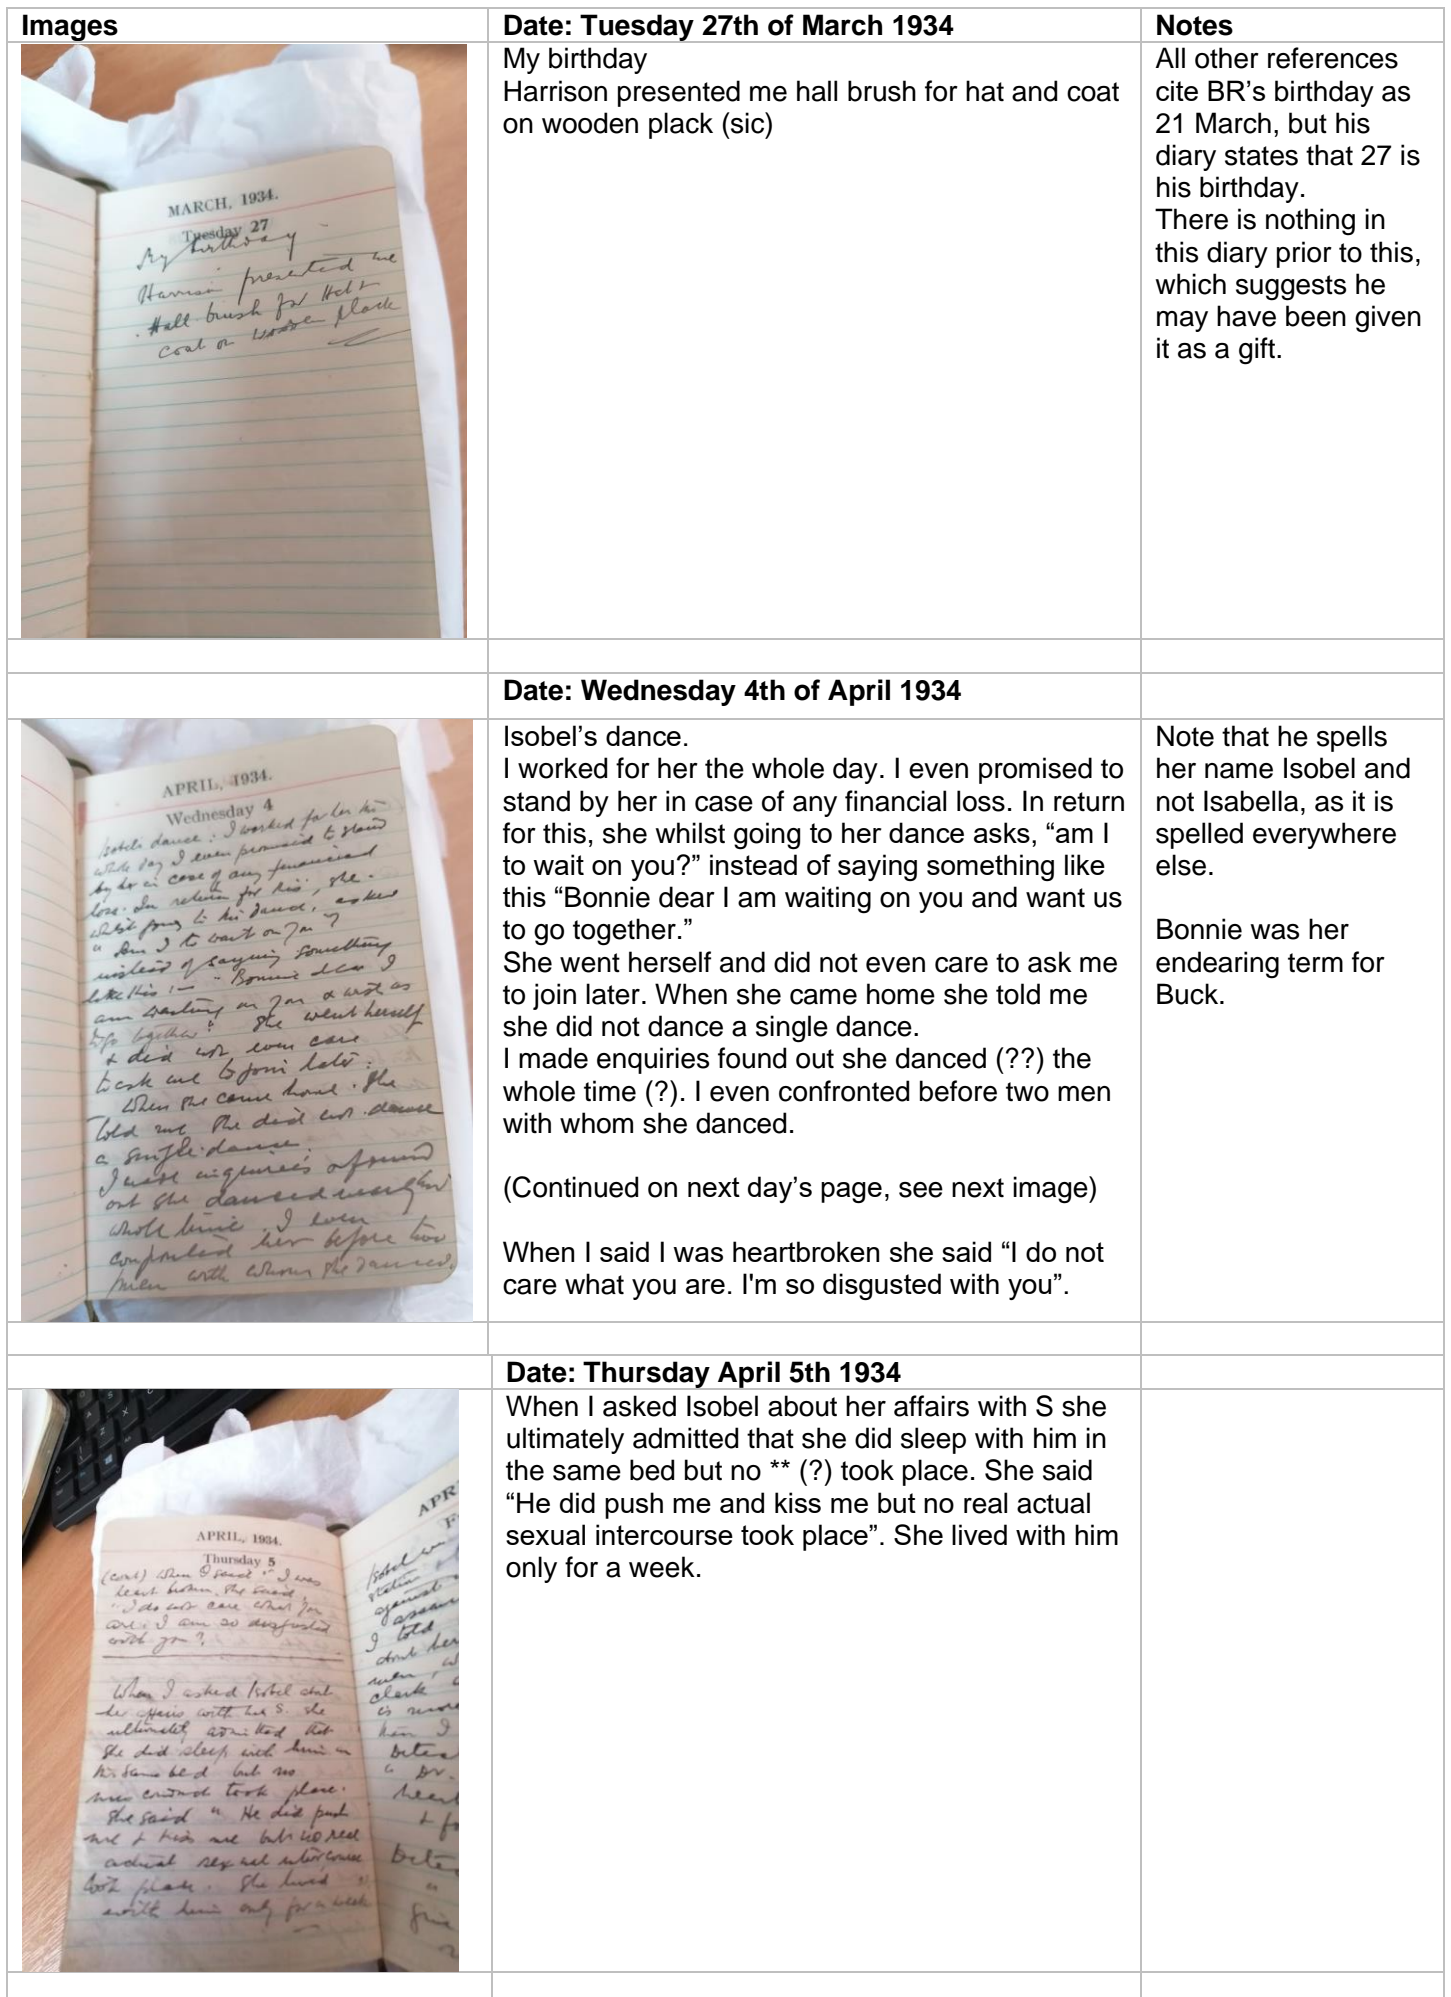 Images
Date: Tuesday 27th of March 1934
Notes
MARCH, 1934.
Tuesday 27
My birthday
Harrison presented me
Hall brush for Hat &
coat on wooden plack
My birthday
Harrison presented me hall brush for hat and coat
on wooden plack (sic)
All other references
cite BR’s birthday as
21 March, but his
diary states that 27 is
his birthday.
There is nothing in
this diary prior to this,
which suggests he
may have been given
it as a gift.
Date: Wednesday 4th of April 1934
APRIL, 1934.
Wednesday 4
Isobel's dance: I worked for her the
whole day I even promised to stand
by her in case of any financial
loss. In return for this, she
whilst going to her dance, asked
"Am I to wait on you"?
instead of saying something
like this :— "Bonnie dear I
am waiting on you &
go together" She went herself
& did not even care
to ask me to join later.
When she came home. She
told me she did not dance
a single dance.
I made enquiries & found
out she danced
whole time. I even
confronted her before two
men with whom she danced.
Isobel’s dance.
I worked for her the whole day. I even promised to
stand by her in case of any financial loss. In return
for this, she whilst going to her dance asks, “am I
to wait on you?” instead of saying something like
this “Bonnie dear I am waiting on you and want us
to go together.”
She went herself and did not even care to ask me
to join later. When she came home she told me
she did not dance a single dance.
I made enquiries found out she danced (??) the
whole time (?). I even confronted before two men
with whom she danced.
(Continued on next day’s page, see next image)
When I said I was heartbroken she said “I do not
care what you are. I'm so disgusted with you”.
Note that he spells
her name Isobel and
not Isabella, as it is
spelled everywhere
else.
Bonnie was her
endearing term for
Buck.
Date: Thursday April 5th 1934
APRIL, 1934.
Thursday 5
(cont) When I said "I was
heart broken, she said,
"I do not care what you
are. I am so disgusted
with you".
When I asked Isobel about
her affairs with S. she
ultimately admitted that
she did sleep with him in
the same bed but no
took place.
She said " He did push
me & kiss me but no real
actual sexual intercourse
took place. She lived
with him only for a week
APR
Isobel
against
I told
about her
men,
clerk
is more
than I
" Dr.
heart
When I asked Isobel about her affairs with S she
ultimately admitted that she did sleep with him in
the same bed but no ** (?) took place. She said
“He did push me and kiss me but no real actual
sexual intercourse took place”. She lived with him
only for a week.